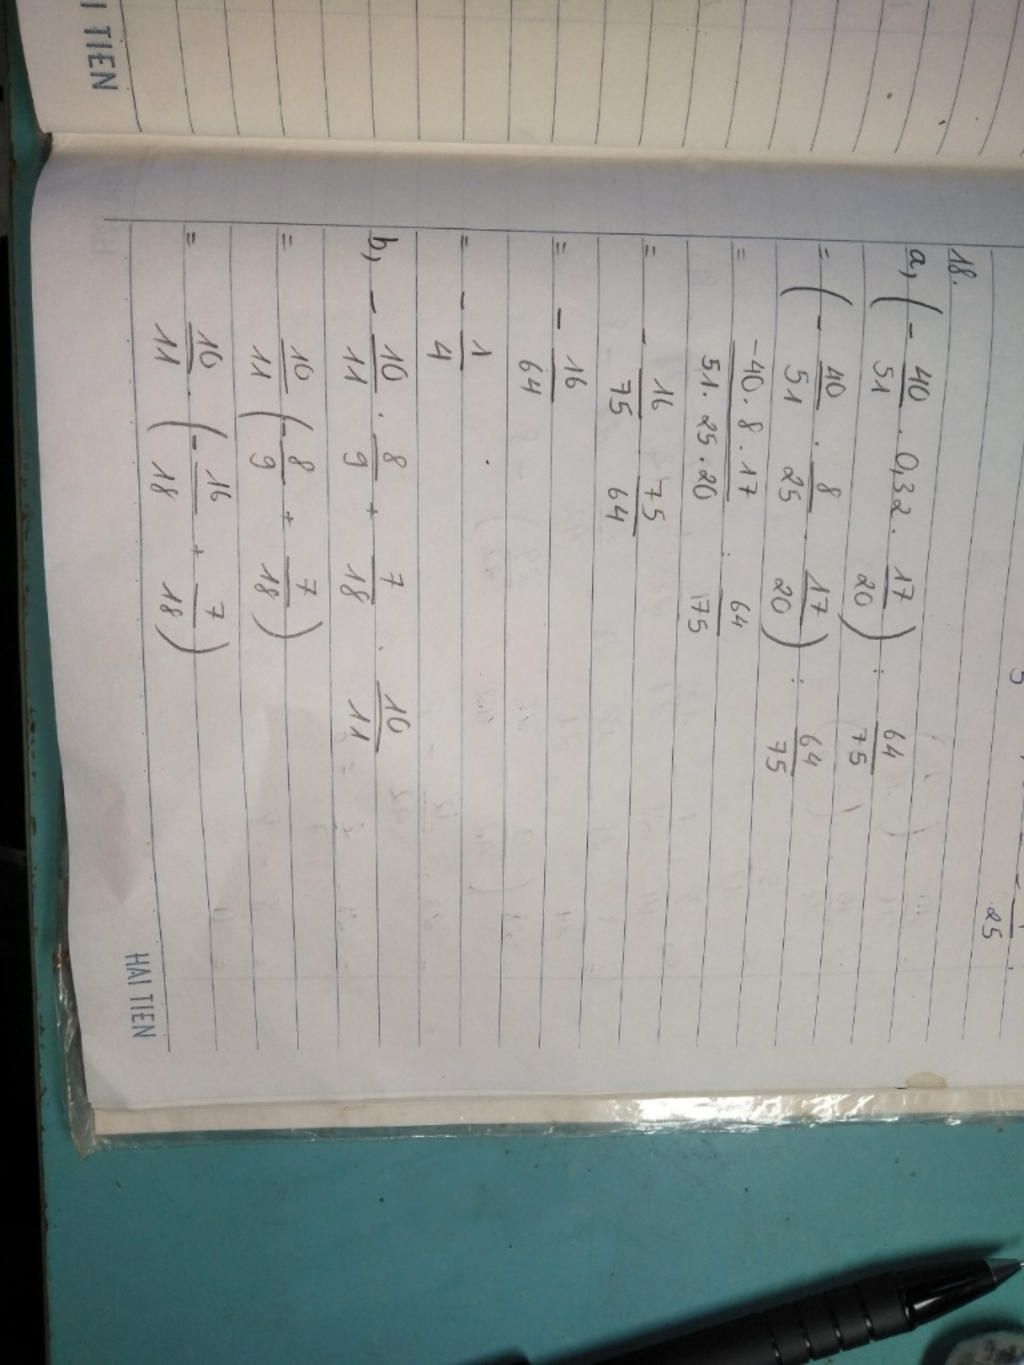 HAI TIEN
5
1/25
18.
a, (- 40/51 . 0,32 . 17/20) : 64/75
= (- 40/51 . 8/25 . 17/20) : 64/75
= -40.8.17/51.25.20 : 64/75
= - 16/75 . 75/64
= - 16/64
= - 1/4
b, - 10/11 . 8/9 + 7/18 . 10/11
= 10/11 (- 8/9 + 7/18)
= 10/11 . (- 16/18 + 7/18)
HAI TIEN